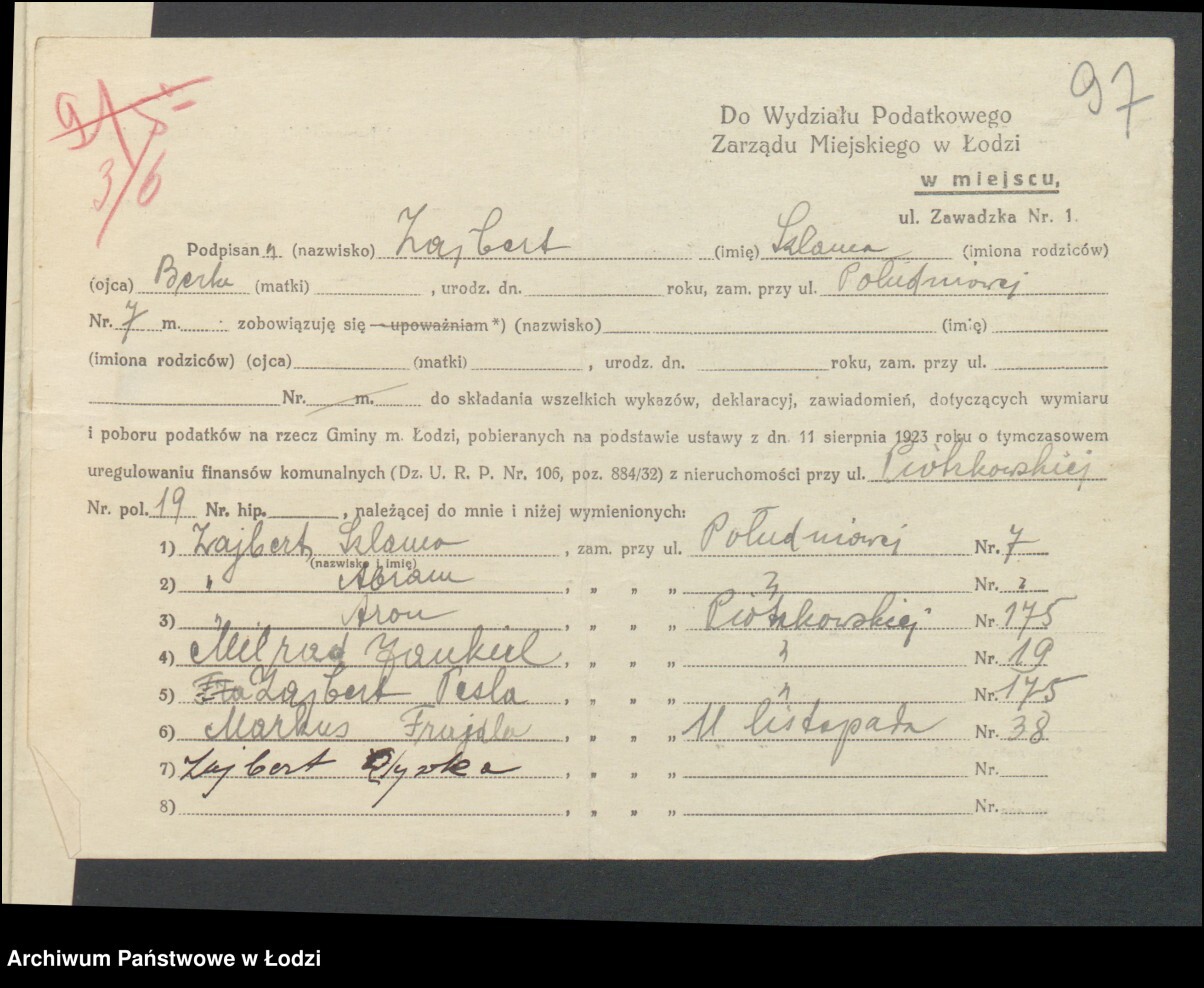 97
3/6
Do Wydziału Podatkowego
Zarządu Miejskiego w Łodzi
w miejscu,
ul. Zawadzka Nr. 1.
Podpisany (nazwisko) Zajbert (imię) Szlama (imiona rodziców)
(ojca) Berek (matki) , urodz. dn. roku, zam. przy ul. Południowej
Nr. 7 m. zobowiązuję się — upoważniam *) (nazwisko) (imię)
(imiona rodziców) (ojca) (matki) , urodz. dn. roku, zam. przy ul.
Nr. m. do składania wszelkich wykazów, deklaracyj, zawiadomień, dotyczących wymiaru
i poboru podatków na rzecz Gminy m. Łodzi, pobieranych na podstawie ustawy z dn. 11 sierpnia 1923 roku o tymczasowem
uregulowaniu finansów komunalnych (Dz. U. R. P. Nr. 106, poz. 884/32) z nieruchomości przy ul. Piotrkowskiej
Nr. pol. 19 Nr. hip. , należącej do mnie i niżej wymienionych:
1) Zajbert Szlama , zam. przy ul. Południowej Nr. 7
(nazwisko i imię)
2) " Abram , " " " " Nr. "
3) " Aron , " " " Piotrkowskiej Nr. 175
4) Milrad Jankiel , " " " " Nr. 19
5) Zajbert Pesla , " " " " Nr. 175
6) Markus Frajdla , " " " 11 listopada Nr. 38
7) Zajbert , " " " Nr.
8) , " " " Nr.
Archiwum Państwowe w Łodzi